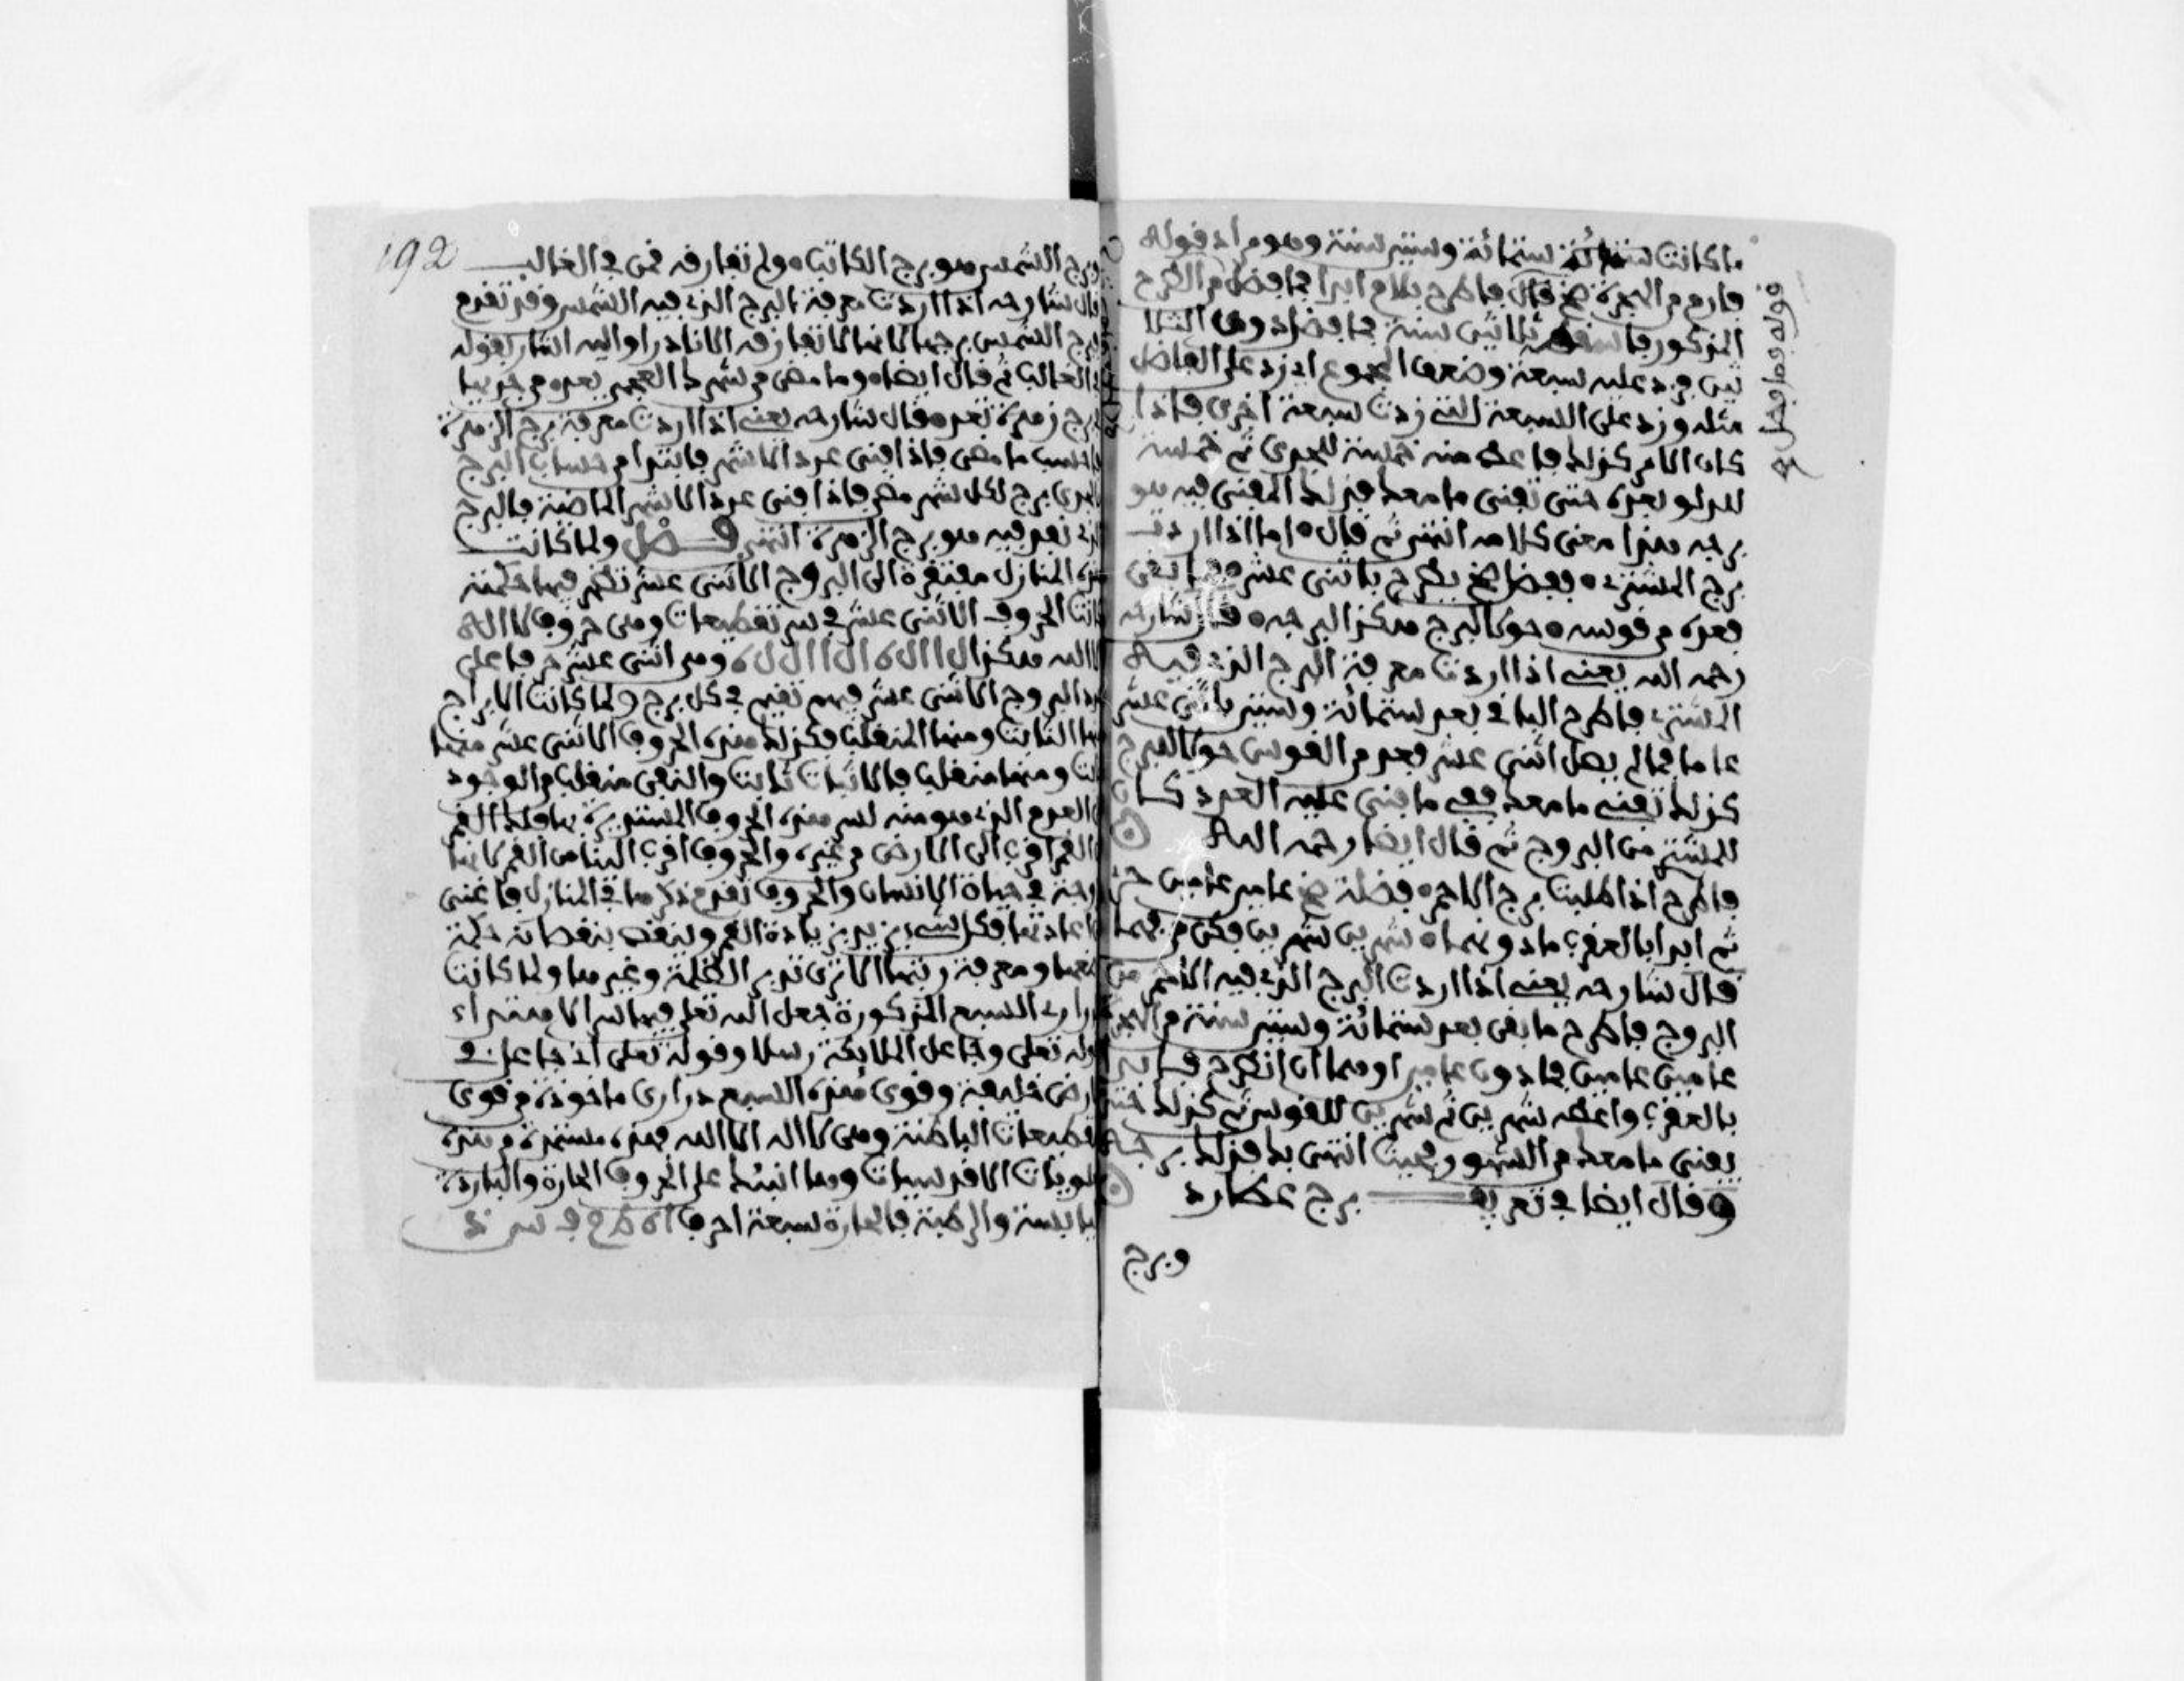 ما كانت ستمائة وستين سنة وهو مراد قوله
فارم من الهجرة ثم قال فاطرح بلام ابدا فما فضل من الطرح
المذكور فا ثلاثين سنة فما فضل دون الثلا
ثين فزد عليه سبعة وضعف المجموع اي زد على الفاضل
مثله وزد على السبعة التي زدت سبعة اخرى فاذا
كان الامر كذلك فاعط منه خمسة للجدي ثم خمسة
للدلو بعده حتى تفنى ما معك فذلك المفني فيه هو
برجه هذا معنى كلامه انتهى ثم قال اما اذا اردت
برج المشتري فبضاخ يطرح باثني عشر فما بقي
فعده من قوسه حول البرج هكذا البرجه قال شارحه
رحمه الله يعني اذا اردت معرفة البرج الذي فيه
المشتري فاطرح الباقي بعد ستمائة وستين باثني عشر
عاما فما لم يصل اثني عشر فعده من القوس حول البرج
كذلك تفني ما معك ففي ما فني عليه العدد كان
المشتري من البروج ثم قال ايضا رحمه الله
فاطرح اذا طلبت برج الاحمر فضلة خ عامين عامين
ثم ابدا بالعقرب ما دونهما شهرين شهرين وكن من فهما
قال شارحه يعني اذا اردت البرج الذي فيه الاحمر من
البروج فاطرح ما بقي بعد ستمائة وستين سنة من الهجرة
عامين عامين فما دون عامين او هما ان انطرح فابدا
بالعقرب واعطه شهرين ثم شهرين للقوس ثم كذلك حتى
يفنى ما معك من الشهور فحيث انتهى بك فذلك برجه
وقال ايضا في تعريف برج عطارد
وبرج
قوله فما فضل
192
وبرج الشمس هو برج الكاتب ولم تفارقه فمن في الغالب
قال شارحه اذا اردت معرفة البرج الذي فيه الشمس وقد تقدم
برج الشمس برجها لانها لا تفارقه الا نادرا والله اشار بقوله
في الغالب ثم قال ايضا وما مضى من شهر العجم يعده من جديها
برج زهرة تعده وقال شارحه يعني اذا اردت معرفة برج الزهرة
فاحسب ما مضى فاذا فني عدد الاشهر فابتدا من حساب البرج
الجدي برج لكل شهر مضى فاذا فني عدد الاشهر الماضية فالبرج
الذي تعد فيه هو برج الزهرة انتهى فصل ولما كانت
هذه المنازل مفتقرة الى البروج الاثني عشر تظهر فيها حكمة
كانت الحروف الاثني عشر في سر تقطيعات وهي حروف لا اله
الا الله هكذا ل ا ا ل ه ا ل ا ا ل ل ه وهي اثنى عشر حرفا على
عدد البروج الاثنى عشر فيهم تقيم في كل برج ولما كانت الابراج
منها الثابت ومنها المنقلب فكذلك هذه الحروف الاثني عشر منها
ثابت ومنها منقلب فالاثبات ثابت والنفي منقلب من الوجود
الى العدم الذي هو منه لسر هذه الحروف المشيرة بها ولك القمر
القمر اقرب الى الارض من غيره والحروف اقرب الينا من القمر لانها
وجة في حياة الانسان والحروف تقدم ذكرها في المنازل فاغنى
عن اعادتها فكل شيء يزيد بزيادة القمر وينقص بنقصانه حكمة
معها ومعرفة رتبها الا ترى تدبير العظمة وغيرها ولما كانت
الدراري السبع المذكورة جعل الله تعلى فيها سرا لا هتداء
وله تعلى وجاعل الملايكة رسلا وقوله تعلى اني جاعل في
الارض خليفة وقوى هذه السبع دراري ماخوذة من قوى
التقطيعات الباطنة وهي لا اله الا الله فهذه مستمدة من هذه
العلويات الاقدسيات وبها انبسط على الحروف الحارة والباردة
واليابسة والرطبة فالحارة سبعة احرف ا ه ط م ف س ذ